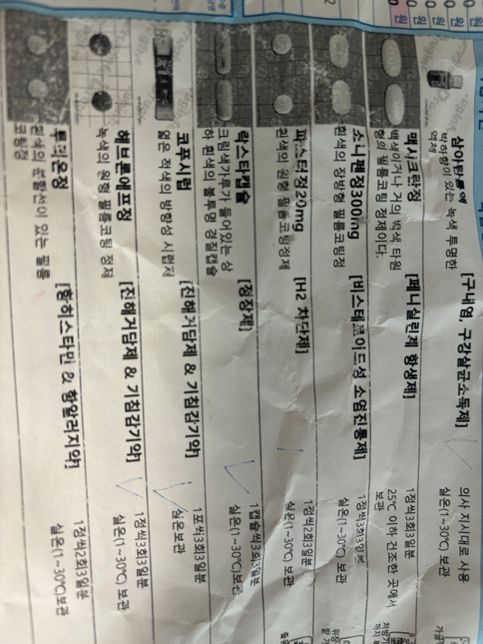 삼아탄툼액
박하향이 있는 녹색 투명한
액제
[구내염, 구강살균소독제]
의사 지시대로 사용
실온(1~30℃) 보관
맥시크란정
백색이거나 거의 백색 타원
형의 필름코팅 정제이다.
[페니실린제 항생제]
1정씩3회3일분
25℃ 이하 건조한 곳에서
보관
소니펜정300mg
흰색의 장방형 필름코팅정
[비스테로이드성 소염진통제]
1정씩3회3일분
실온(1~30℃) 보관
20mg
흰색의 원형 필름코팅정제
[H2 차단제]
1정씩2회3일분
실온(1~30℃) 보관
락스타캡슐
크림색가루가 들어있는 상
하 흰색의 불투명 경질캡슐
[정장제]
1캡슐씩3회3일분
실온(1~30℃) 보관
코푸시럽
엷은 적색의 방향성 시럽제
[진해거담제 & 기침감기약]
1포씩3회3일분
실온보관
헤브론에프정
녹색의 원형 필름코팅 정제
[진해거담제 & 기침감기약]
1정씩3회3일분
실온(1~30℃) 보관
투리온정
흰색의 분할선이 있는 필름
코팅정
[항히스타민 & 항알러지약]
1정씩2회3일분
실온(1~30℃) 보관